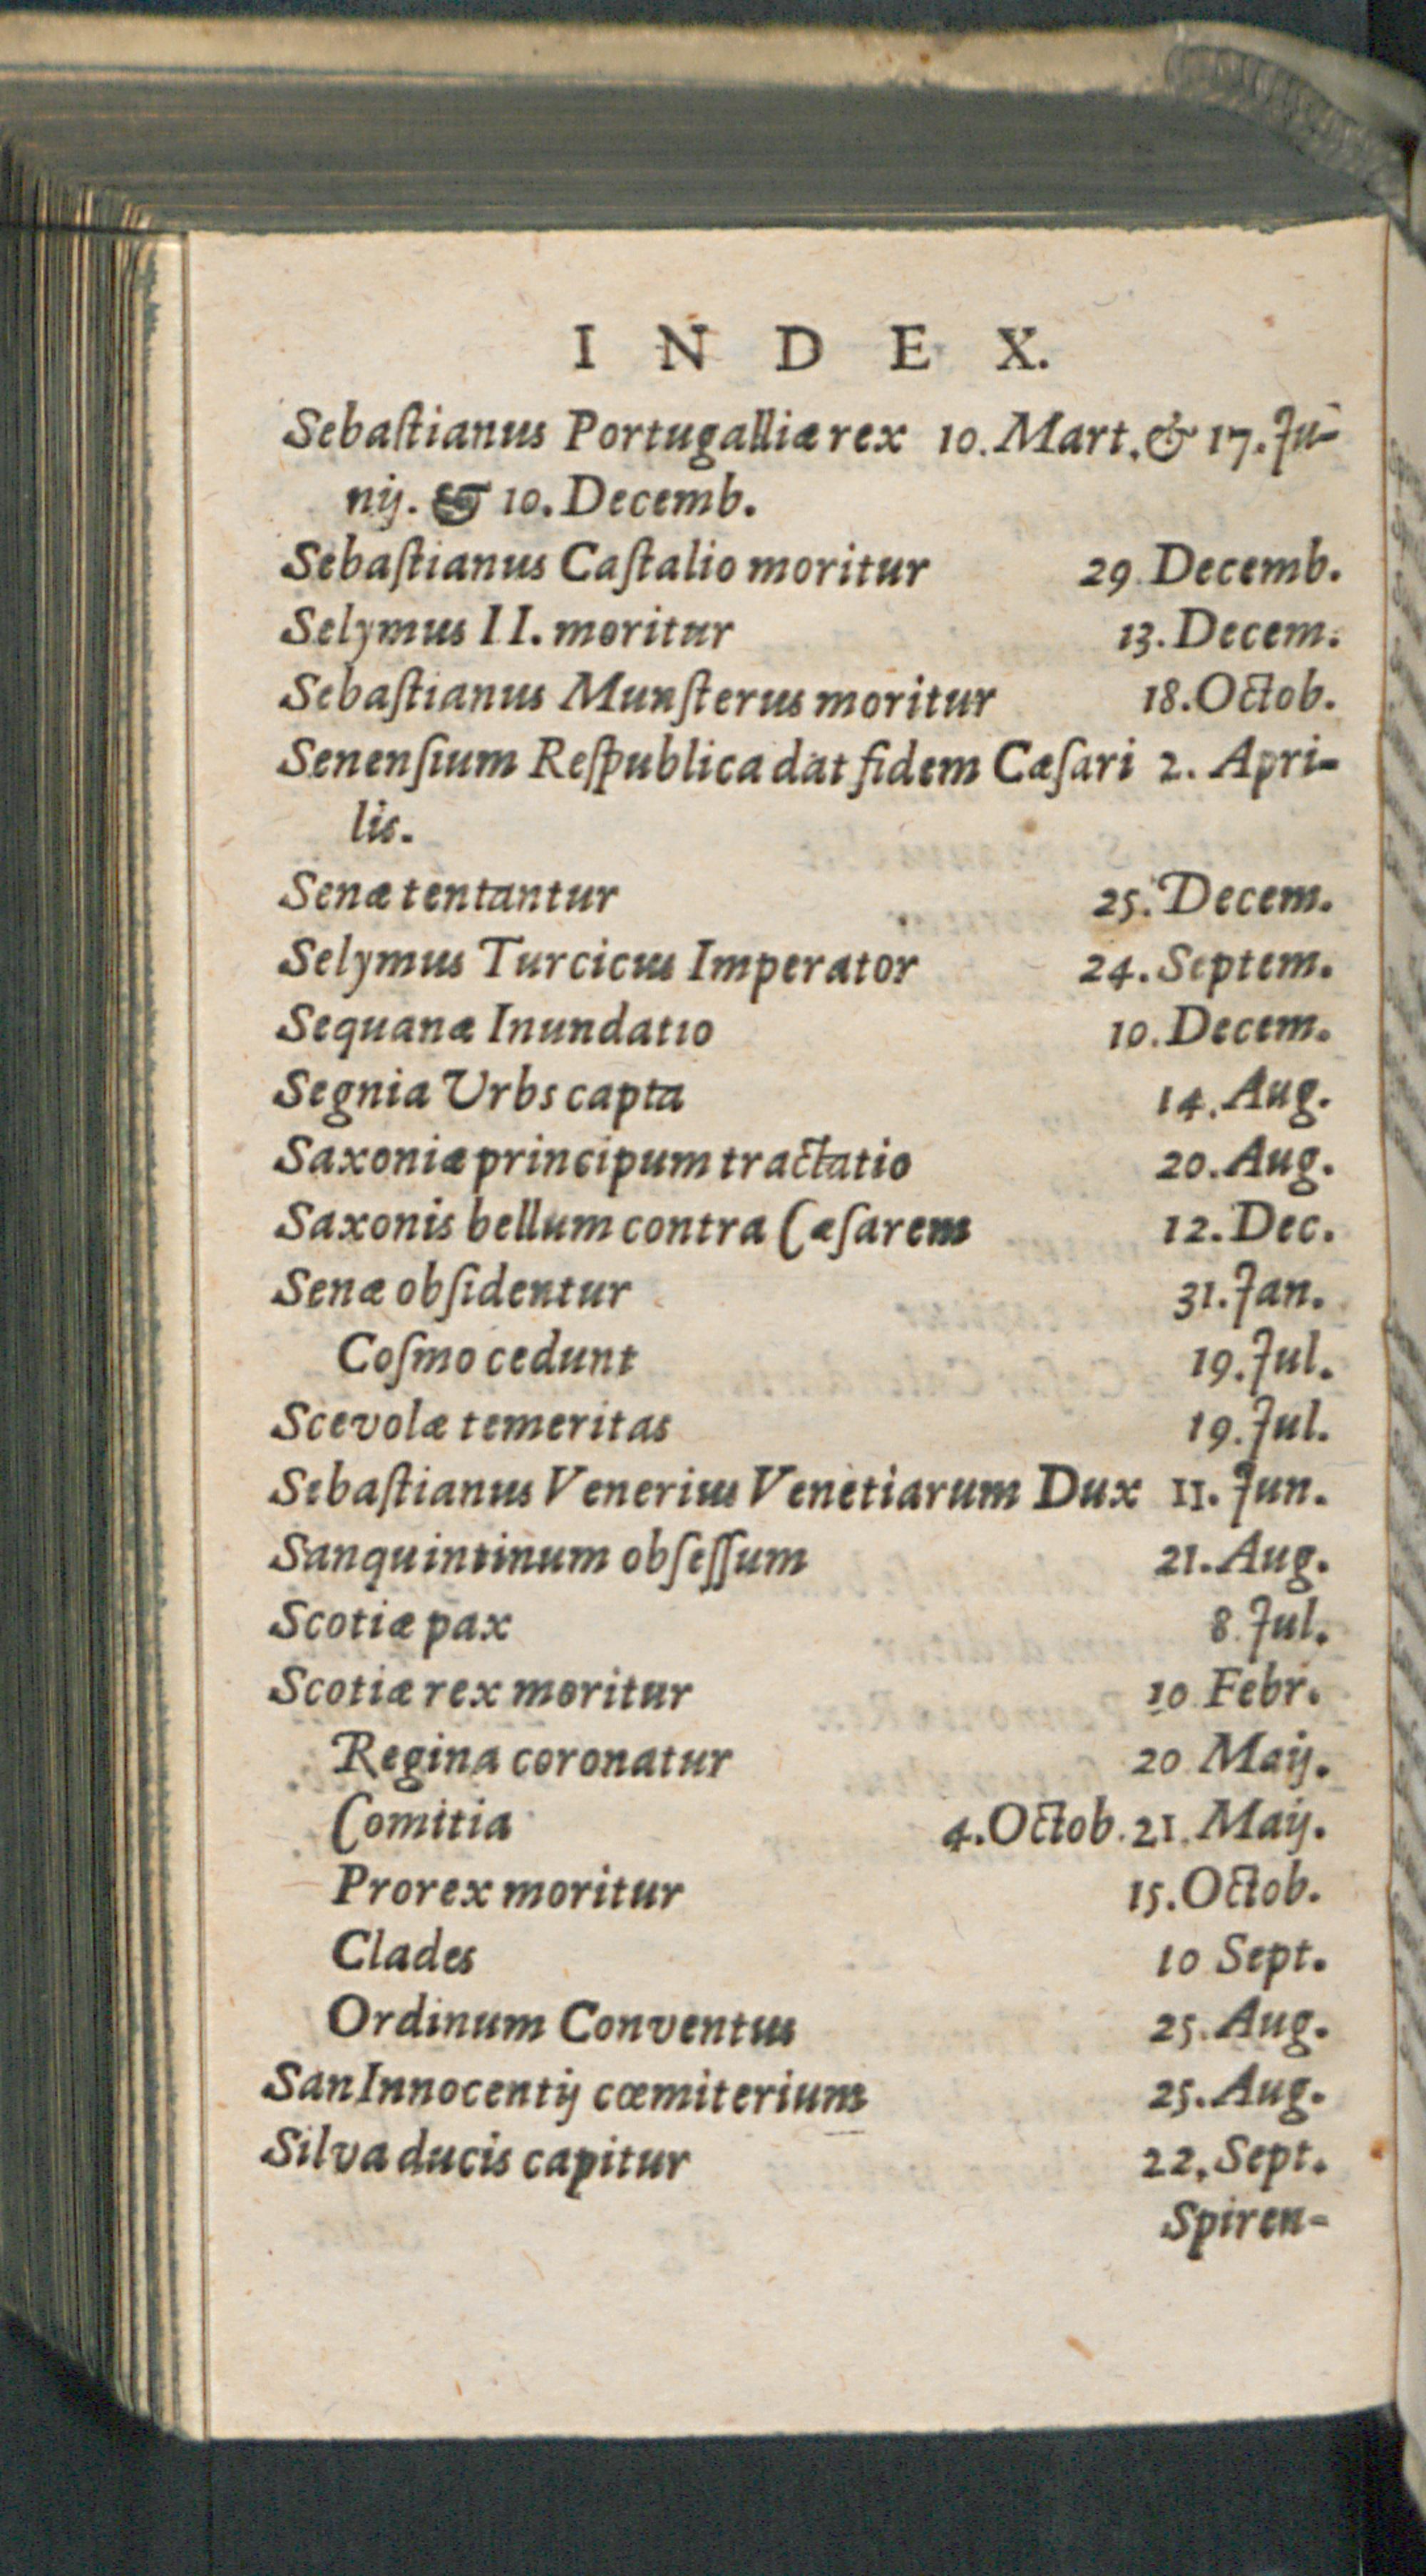 INDEX.
Sebaſtianus Portugalliæ rex 10. Mart. & 17. Ju-
nij. & 10. Decemb.
Sebaſtianus Caſtalio moritur 29 Decemb.
Selymus II. moritur 13. Decem.
Sebaſtianus Munſterus moritur 18. Octob.
Senenſium Reſpublica dat fidem Cæſari 2. Apri-
lis.
Senæ tentantur 25. Decem.
Selymus Turcicus Imperator 24. Septem.
Sequanæ Inundatio 10. Decem.
Segnia Urbs capta 14. Aug.
Saxoniæ principum tractatio 20. Aug.
Saxonis bellum contra Cæſarem 12. Dec.
Senæ obſidentur 31. Jan.
Coſmo cedunt 19. Jul.
Scevolæ temeritas 19. Jul.
Sebaſtianus Venerius Venetiarum Dux 11. Jun.
Sanquintinum obſeſſum 21. Aug.
Scotiæ pax 8. Jul.
Scotiæ rex moritur 10 Febr.
Regina coronatur 20 Maij.
Comitia 4. Octob. 21. Maij.
Prorex moritur 15. Octob.
Clades 10 Sept.
Ordinum Conventus 25. Aug.
San Innocentij cœmiterium 25. Aug.
Silva ducis capitur 22. Sept.
Spiren-